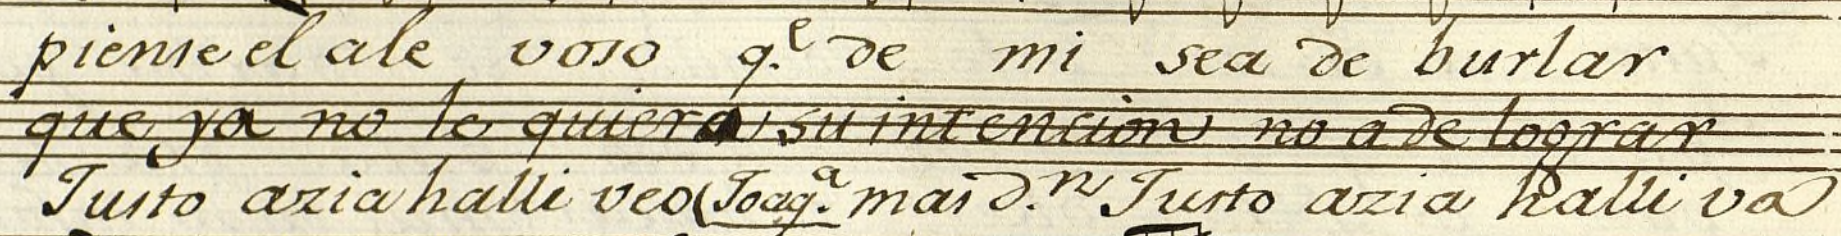 piense el ale voso q.e de mi sea de burlar
que ya no le quiera su intencion no a de lograr
Justo azia halli veo (Joaq.a mas D.n Justo azia halli va